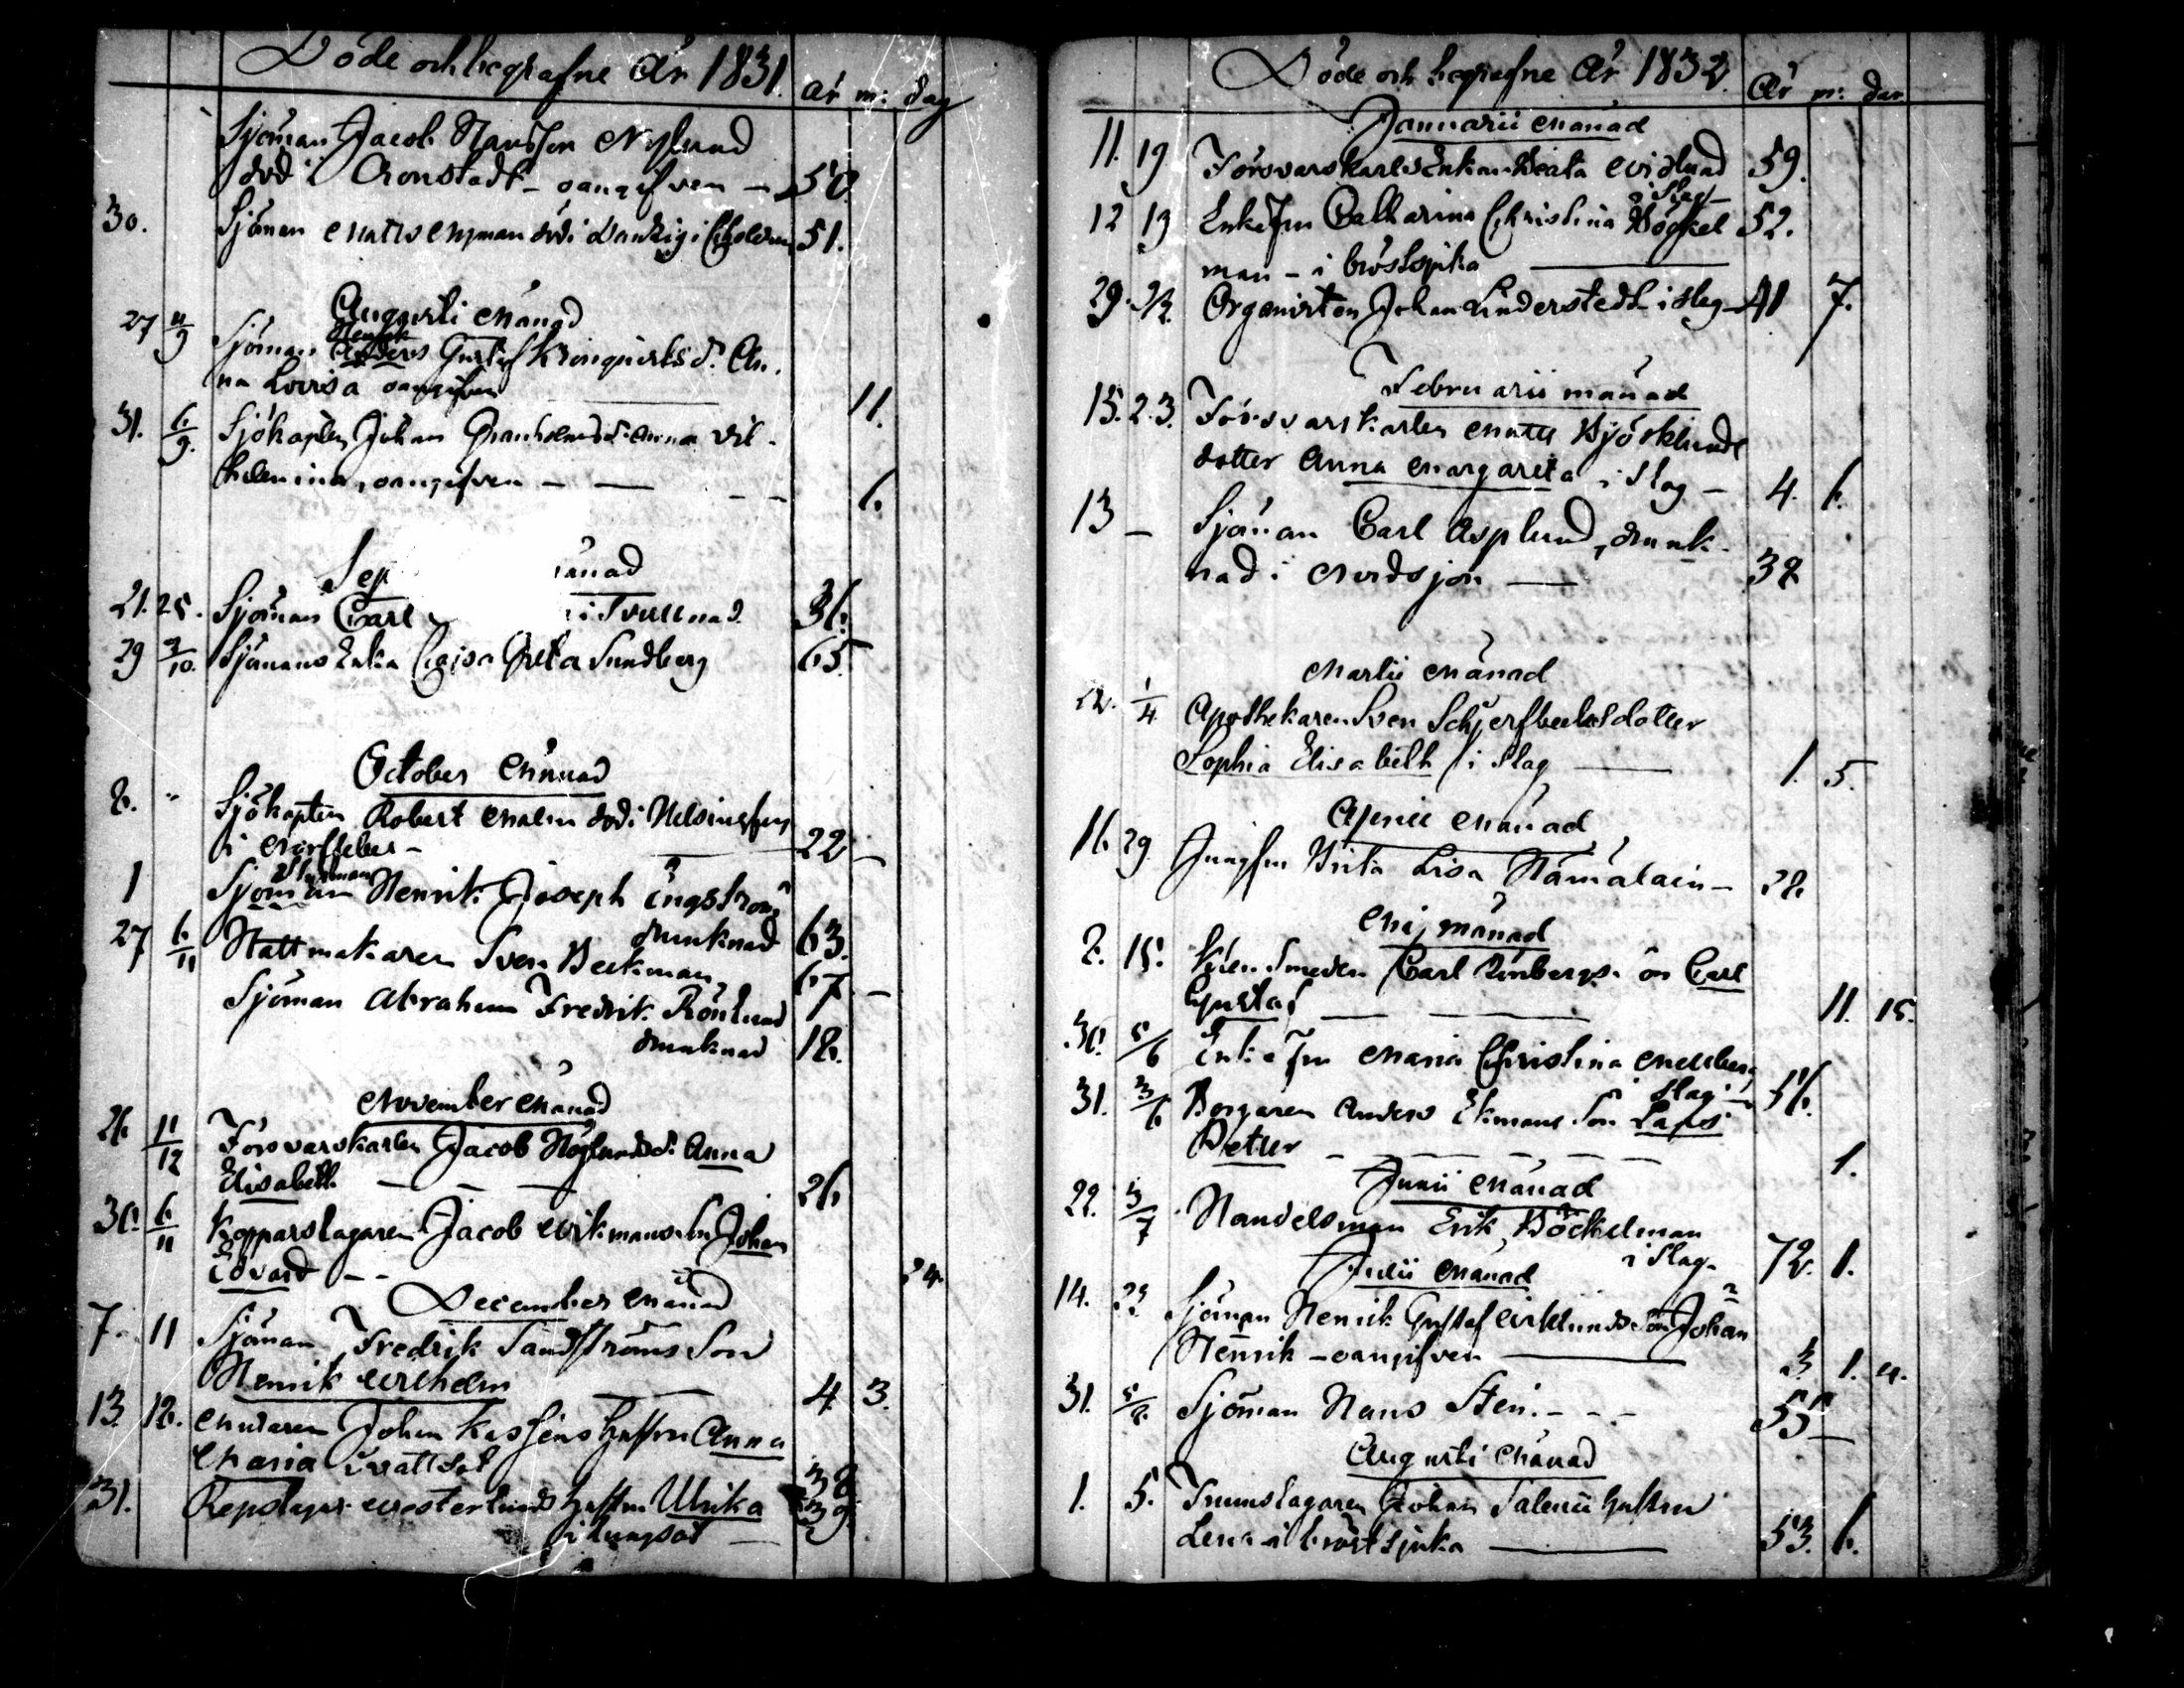 Döde och begrafne År 1831. år m: dag
Sjöman Jacob Hansson Nylund
död i Cronstadt - oangifven - 50.
30. Sjöman Matts Nyman död i Dantzig i Cholera 51.
Augusti Månad
27 11/9 Sjöman Anders Henrik Gustaf Kronqvists d. An-
na Lovisa oangifven 11.
31. 6/9. Sjökapten Johan Granholms d. Anna Vil-
helmina, oangifven - - - - 6.
Sep ånad
21. 25. Sjöman Carl i Svullnad. 36.
29 9/10. Sjömans Enka Cajsa Greta Sundberg 65.
October Månad
8. " Sjökapten Robert Malm död i Helsingfors
i Nerffeber - 22 -
1 Sjöman Styrman Henrik Joseph Engström
drunknad 63.
27 6/11 Hattmakaren Sven Beckman 67 -
Sjöman Abraham Fredrik Rönlund
drunknad 18.
November Månad
26 11/12 Försvarskarlen Jacob Höglunds d. Anna
Elisabeth - - - 26
30. 6/11 Kopparslagaren Jacob Wikmans son Johan
Edvard - - 24.
December Månad
7. 11 Sjöman Fredrik Sandströms Son
Henrik Wilhelm 4. 3.
13. 18. Muraren Johan Hustru Anna
Maria i vattsot 38
31. Repslagar Westerlunds hustru Ulrika 39
i lungsot -
Döde och begrafne År 1832. År m: dar
Januarii Månad
11. 19 Försvarskarls Enkan Beata Widlund 59.
i Slag -
12 19 Enkefru Catharina Christina Böckel 52.
man - i bröstsjuka
29. 5/2. Organisten Johan Linderstedt i slag - 41 7.
Februarii månad
15. 2.3. Försvarskarlen Matts Björklunds
dotter Anna Margareta i Slag - 4. 6.
13 - Sjöman Carl Asplund, drunk-
nad i Nordsjön - 38
Martii Månad
22. 1/4 Apothekaren Sven Schjerfbecks dotter
Sophia Elisabeth i Slag - 1. 5.
Aprill Månad
16. 29 Jungfru Brita Lisa Hämäläin - 28.
Maj månad
8. 15. Carl son Carl
Gustaf - - 11. 15.
30. 5/6 Enke Fru Maria Christina Mellberg
i Slag - 56.
31. 3/6 Borgaren Anders Ekmans Son Lars
Petter - - - - - 1.
Junii Månad
22. 3/7 Handelsman Erik Böckelman
i Slag - 72. 1.
Julii Månad
14. 22 Sjöman Henrik Gustaf Wiklunds Son Johan
Henrik - oangifven - 3 1. 4.
31. 5/8. Sjöman Hans Sten. - - - 55 -
Augusti Månad
1. 5. Trumslagaren Johan Salenii hustru
Lena i bröstsjuka - 53. 6.